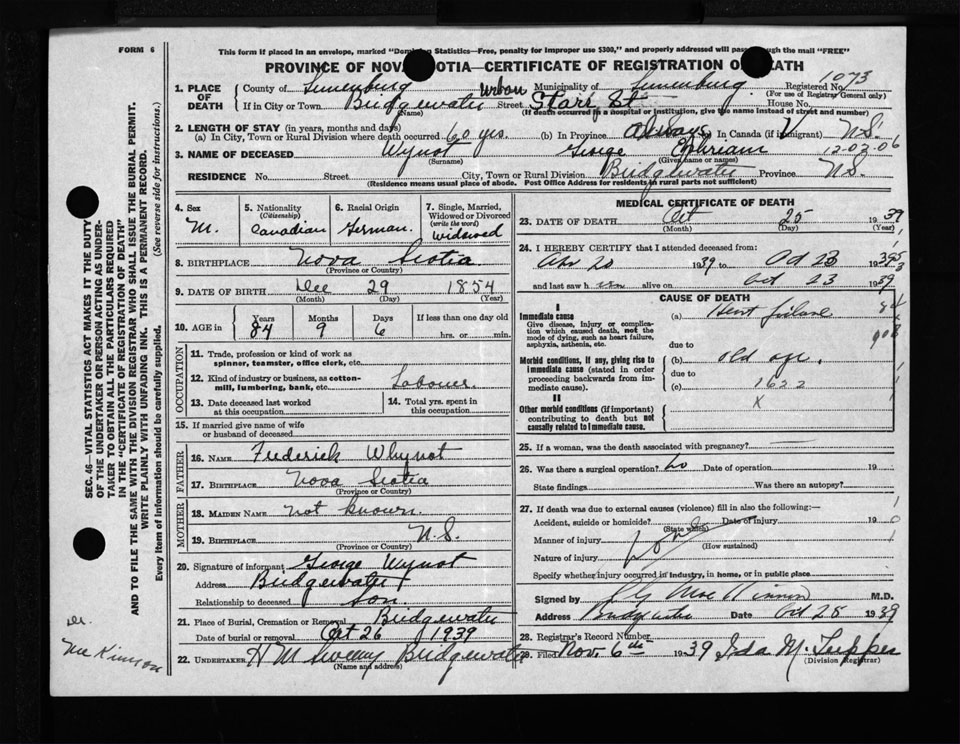 FORM 6
This form if placed in an envelope, marked "Dominion Statistics—Free, penalty for improper use $300," and properly addressed will pass through the mail "FREE"
PROVINCE OF NOVA SCOTIA—CERTIFICATE OF REGISTRATION OF DEATH
1. PLACE OF DEATH
County of Lunenburg Urban Municipality of Lunenburg Registered No. 1073
(For use of Registrar General only)
If in City or Town Bridgewater Street Starr St. House No.
(Name) (If death occurred in a hospital or institution, give the name instead of street and number)
2. LENGTH OF STAY (in years, months and days)
(a) In City, Town or Rural Division where death occurred 60 yrs. (b) In Province always (c) In Canada (if immigrant) N.S.
3. NAME OF DECEASED Wynot George Ephriam 12.02.06
(Surname) (Given name or names)
RESIDENCE No. Street City, Town or Rural Division Bridgewater Province N.S.
(Residence means usual place of abode. Post Office Address for residents in rural parts not sufficient)
4. Sex M.
5. Nationality (Citizenship) Canadian
6. Racial Origin German.
7. Single, Married, Widowed or Divorced (write the word) Widowed
8. BIRTHPLACE Nova Scotia
(Province or Country)
9. DATE OF BIRTH Dec 29 1854
(Month) (Day) (Year)
10. AGE in Years Months Days If less than one day old
84 9 6 hrs. or min.
OCCUPATION
11. Trade, profession or kind of work as spinner, teamster, office clerk, etc.
12. Kind of industry or business, as cotton-mill, lumbering, bank, etc. Labourer.
13. Date deceased last worked at this occupation
14. Total yrs. spent in this occupation
15. If married give name of wife or husband of deceased
FATHER
16. NAME Frederick Whynot
17. BIRTHPLACE Nova Scotia
(Province or Country)
MOTHER
18. MAIDEN NAME not known.
19. BIRTHPLACE N.S.
(Province or Country)
20. Signature of informant George Wynot
Address Bridgewater
Relationship to deceased Son.
21. Place of Burial, Cremation or Removal Bridgewater
Date of burial or removal Oct 26 1939
22. UNDERTAKER H M Sweeny Bridgewater
(Name and address)
MEDICAL CERTIFICATE OF DEATH
23. DATE OF DEATH Oct 25 1939
(Month) (Day) (Year)
24. I HEREBY CERTIFY that I attended deceased from:
Apr 20 1939 to Oct 23 1939
and last saw him alive on Oct 23 1939
CAUSE OF DEATH
I
Immediate cause
Give disease, injury or complication which caused death, not the mode of dying, such as heart failure, asphyxia, asthenia, etc.
(a) Heart failure
due to
Morbid conditions, if any, giving rise to immediate cause (stated in order proceeding backwards from immediate cause).
(b) old age.
due to
(c) 1622
II
Other morbid conditions (if important) contributing to death but not causally related to immediate cause.
X
25. If a woman, was the death associated with pregnancy?
26. Was there a surgical operation? no Date of operation 19
State findings Was there an autopsy?
27. If death was due to external causes (violence) fill in also the following:—
Accident, suicide or homicide? Date of injury 19
(State which)
Manner of injury
(How sustained)
Nature of injury
Specify whether injury occurred in industry, in home, or in public place
Signed by M.D.
Address Bridgewater Date Oct 28 1939
28. Registrar's Record Number
29. Filed Nov. 6th 1939 Ida M. Tupper
(Division Registrar)
SEC. 46—VITAL STATISTICS ACT MAKES IT THE DUTY
OF THE UNDERTAKER OR PERSON ACTING AS UNDER-
TAKER TO OBTAIN ALL THE PARTICULARS REQUIRED
IN THE "CERTIFICATE OF REGISTRATION OF DEATH"
AND TO FILE THE SAME WITH THE DIVISION REGISTRAR WHO SHALL ISSUE THE BURIAL PERMIT.
WRITE PLAINLY WITH UNFADING INK. THIS IS A PERMANENT RECORD.
Every item of information should be carefully supplied. (See reverse side for instructions.)
Dr.
McKinnon